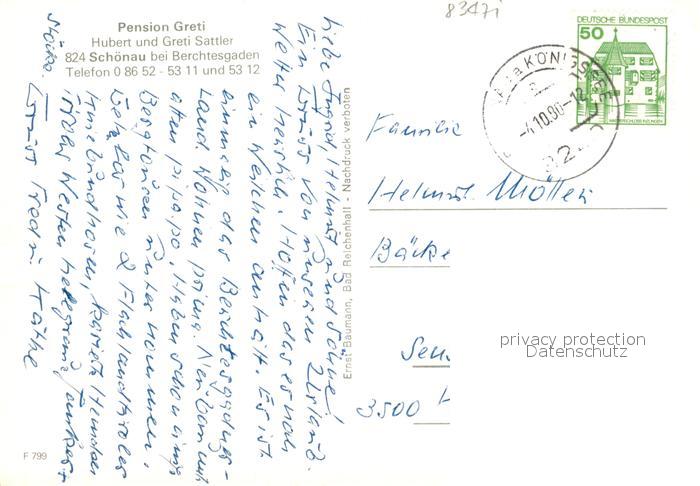 8347i
Pension Greti
Hubert und Greti Sattler
824 Schönau bei Berchtesgaden
Telefon 0 86 52 - 53 11 und 53 12
Liebe Ingrid Helmut und Söhne!
Ein Gruß von unseren Urlaub.
Wetter herrlich. Hoffen das es noch
ein Weilchen anhält. Es ist
einmalig das Berchtesgadner-
Land. Wohnen prima. Neubau mit
allen pi pa po. Haben schon einige
Bergtouren unternommen.
Kniebundhosen, karierte Hemden
Gruß Fredi u. Käthe
Stöcke.
Ernst Baumann, Bad Reichenhall - Nachdruck verboten
DEUTSCHE BUNDESPOST
50
WASSERSCHLOSS INZLINGEN
-4.10.80-12
Familie
Helmut Möller
Bäcke
3500
privacy protection
Datenschutz
F 799